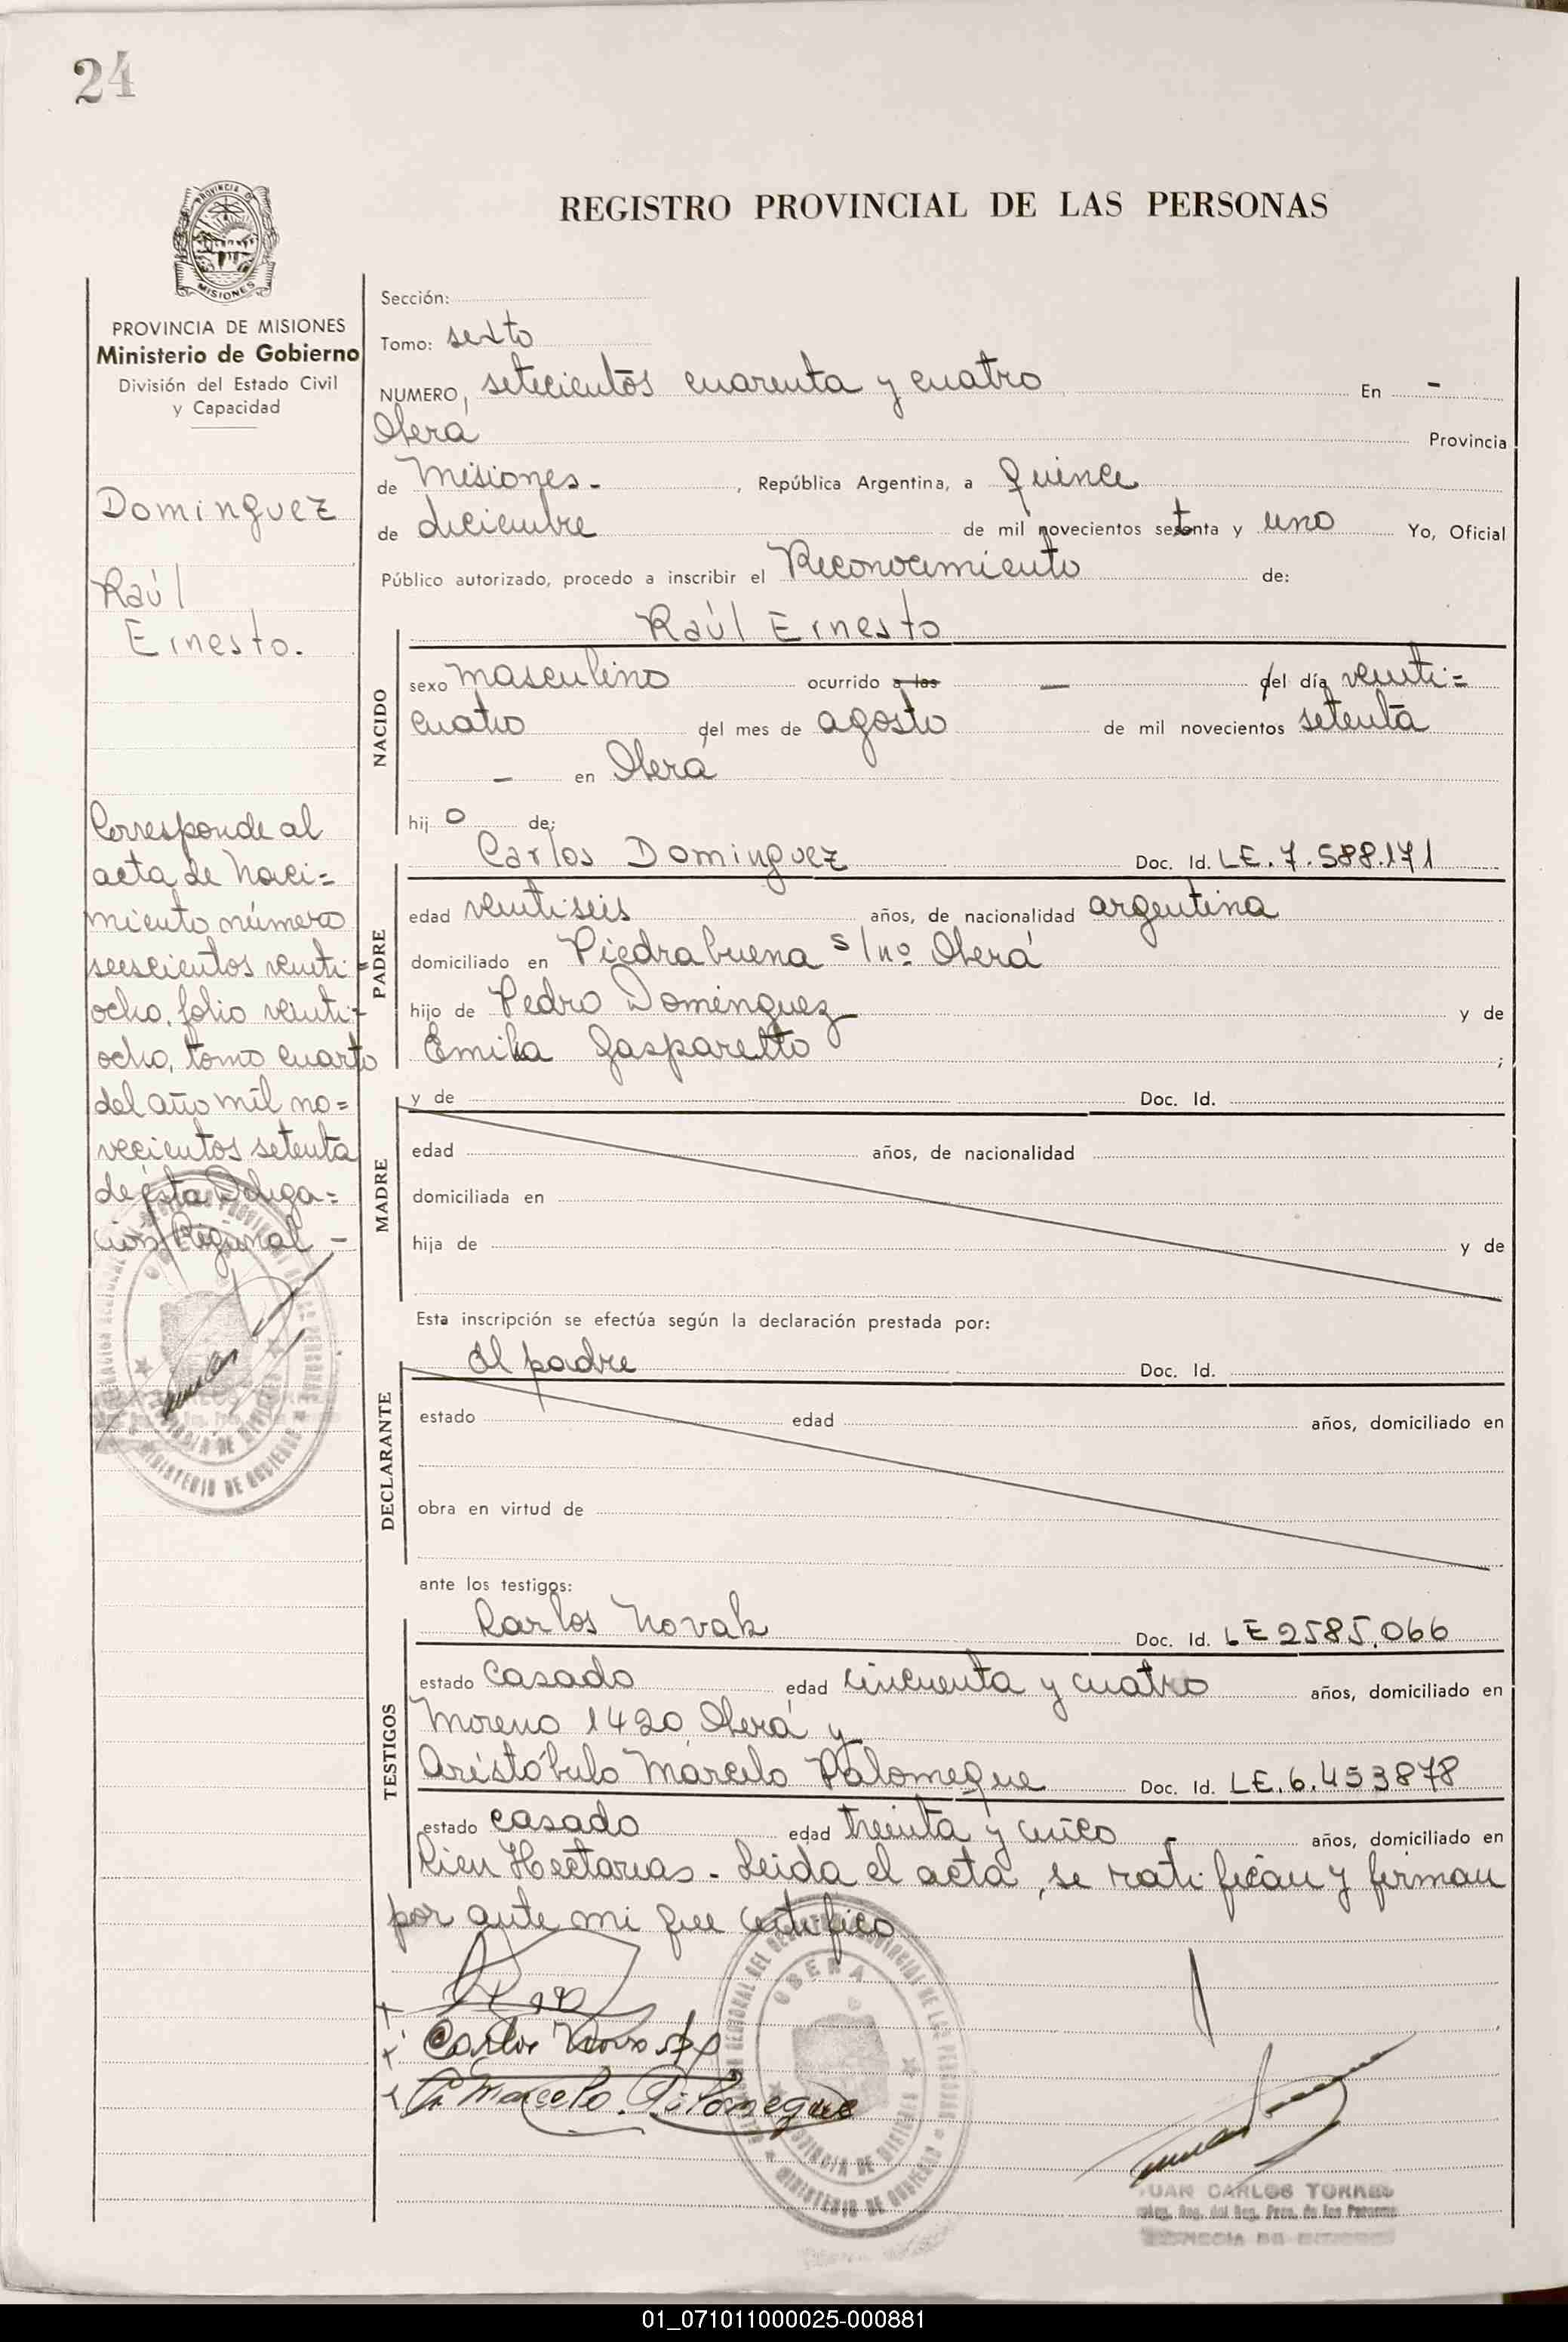 24
PROVINCIA DE
MISIONES
REGISTRO PROVINCIAL DE LAS PERSONAS
PROVINCIA DE MISIONES
Ministerio de Gobierno
División del Estado Civil
y Capacidad
Dominguez
Raúl
Ernesto.
Corresponde al
acta de Naci=
miento número
seiscientos veinti=
ocho, folio veinti=
ocho, tomo cuarto
del año mil no=
vecientos setenta
de esta Delega=
ción Regional -
Sección:
Tomo: sexto
NUMERO, setecientos cuarenta y cuatro En -
Oberá Provincia
de Misiones.- , República Argentina, a quince
de diciembre de mil novecientos setenta y uno Yo, Oficial
Público autorizado, procedo a inscribir el Reconocimiento de:
Raúl Ernesto
NACIDO
sexo masculino ocurrido a las — del día veinti=
cuatro del mes de agosto de mil novecientos setenta
— en Oberá
hijo de:
Carlos Dominguez Doc. Id. LE. 7.588.171
PADRE
edad veintiseis años, de nacionalidad argentina
domiciliado en Piedrabuena s/nº Oberá
hijo de Pedro Dominguez y de
Emilia Gasparetto ;
MADRE
y de Doc. Id.
edad años, de nacionalidad
domiciliada en
hija de y de
Esta inscripción se efectúa según la declaración prestada por:
El padre Doc. Id.
DECLARANTE
estado edad años, domiciliado en
obra en virtud de
ante los testigos:
Carlos Novak Doc. Id. LE 2585.066
TESTIGOS
estado casado edad cincuenta y cuatro años, domiciliado en
Moreno 1420 Oberá y
Aristóbulo Marcelo Palomeque Doc. Id. LE. 6.453878
estado casado edad treinta y cinco años, domiciliado en
Cien Hectareas - Leida el acta, se ratifican y firman
por ante mi que certifico
Carlos
Marcelo Palomeque
OBERA
PROVINCIA DE MISIONES
MINISTERIO DE GOBIERNO
JUAN CARLOS TORRES
01_071011000025-000881